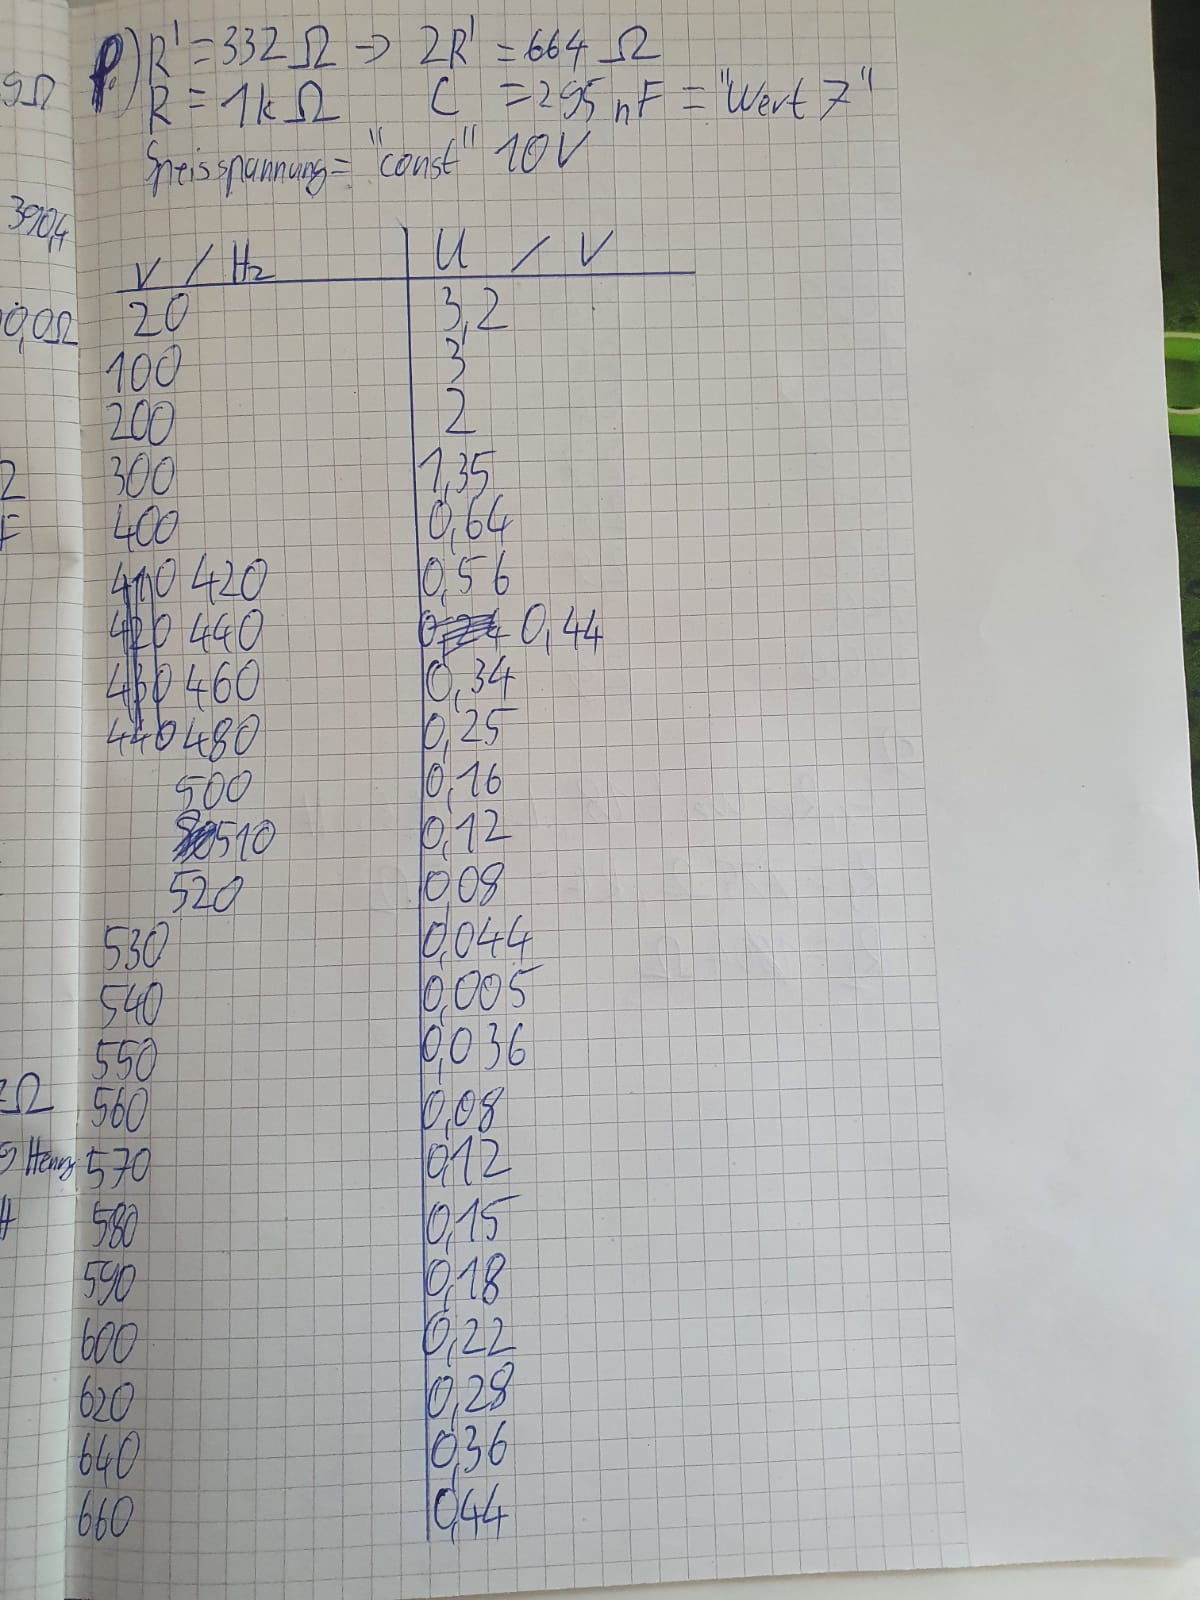 R' = 332 Ω → 2R' = 664 Ω
R = 1k Ω C = 295 nF = "Wert 7"
Speisspannung = "const" 10V
9Ω
390,4
0,0Ω
2
F
2Ω
Henry
H
ν / Hz U / V
20 3,2
100 3
200 2
300 1,35
400 0,64
410 420 0,56
420 440 0,44
430 460 0,34
440 480 0,25
500 0,16
510 0,12
520 0,08
530 0,044
540 0,005
550 0,036
560 0,08
570 0,12
580 0,15
590 0,18
600 0,22
620 0,28
640 0,36
660 0,44